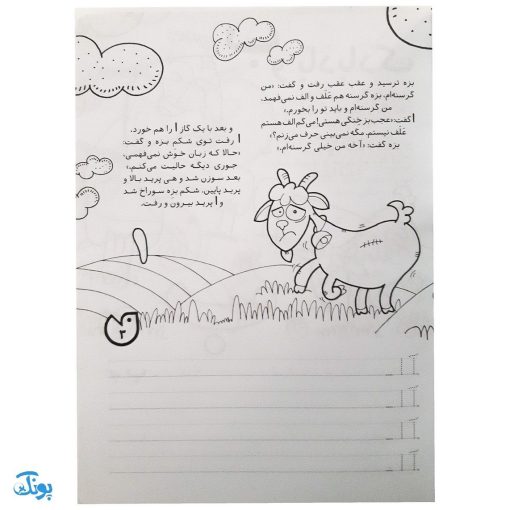 بزه ترسید و عقب عقب رفت و گفت: «من
گرسنه‌ام. بزه گرسنه هم عَلَف و الف نمی‌فهمد.
من گرسنه‌ام و باید تو را بخورم.»
ا گفت: «عجب بز خِنگی هستی! می‌گم الف هستم
عَلَف نیستم. مگه نمی‌بینی حرف می‌زنم؟»
بزه گفت: «آخه من خیلی گرسنه‌ام.»
و بعد با یک گاز ا را هم خورد.
ا رفت توی شکم بزه و گفت:
«حالا که زبان خوش نمی‌فهمی،
جوری دیگه حالیت می‌کنم.»
بعد سوزن شد و هی پرید بالا و
پرید پایین. شکم بزه سوراخ شد
و ا پرید بیرون و رفت.
۳
آ ا
آ ا
آ ا
آ ا
پونک